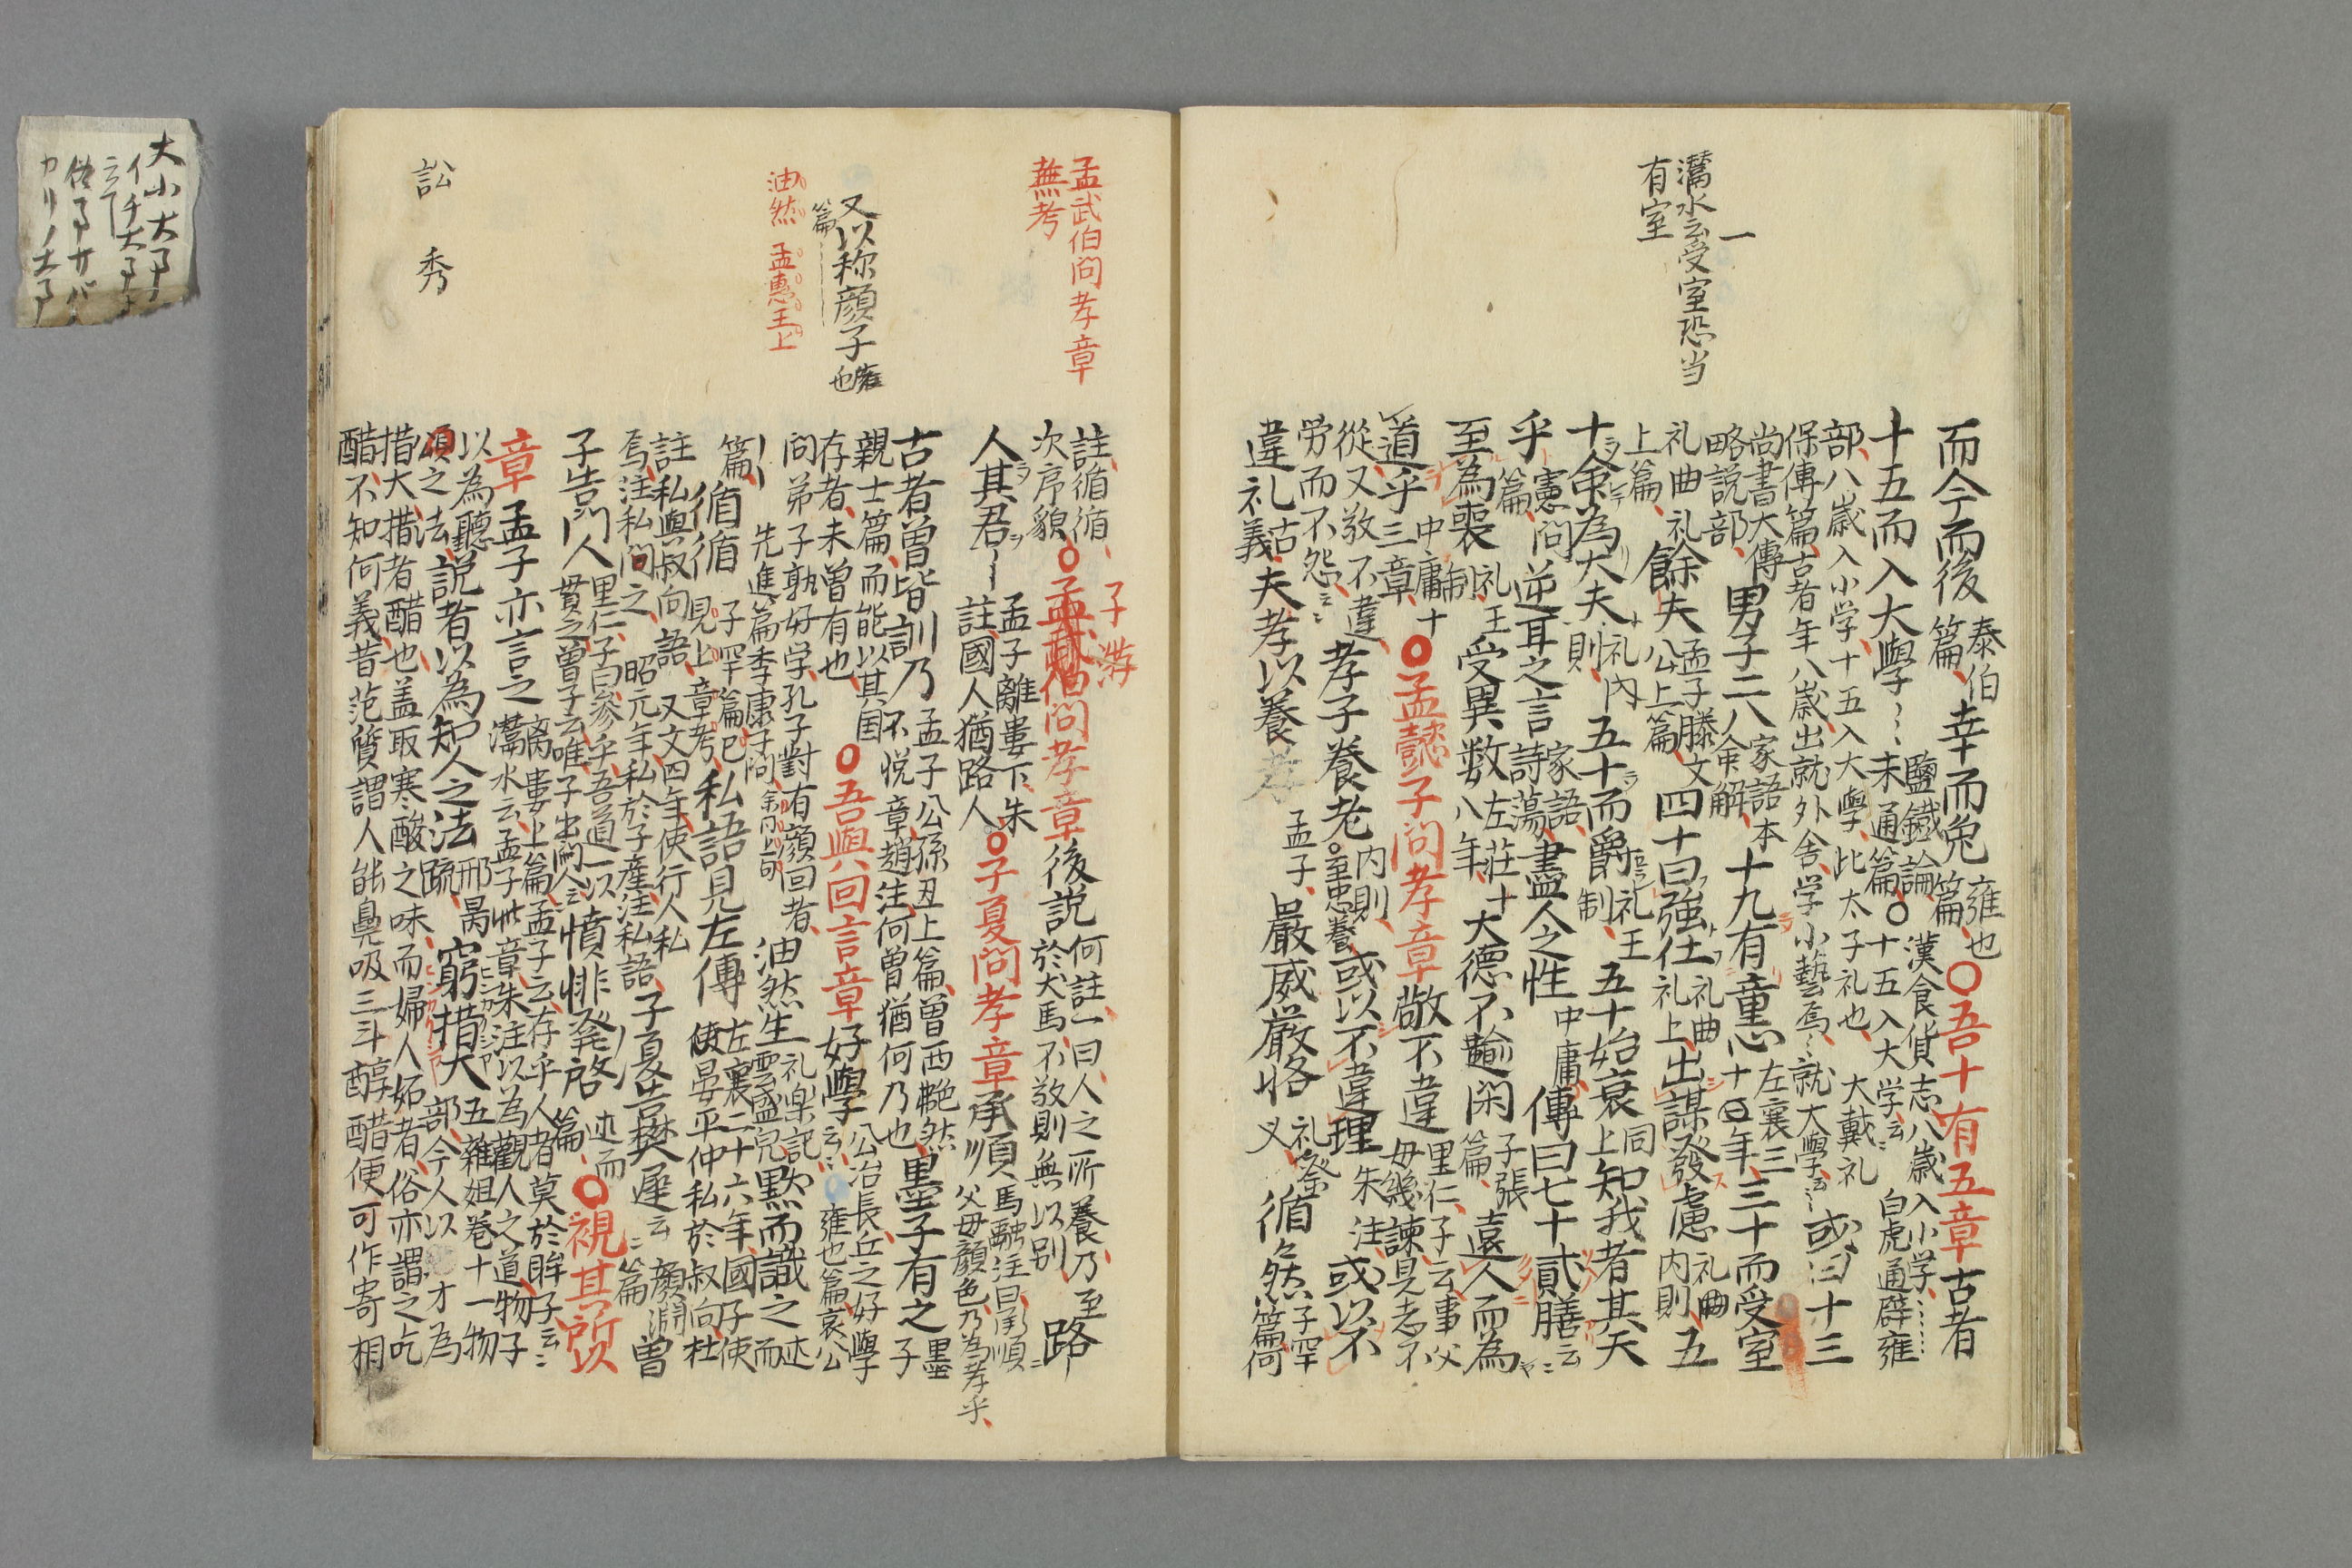 一
灊水云受室恐当
有室
而今而後 泰伯篇、幸而免 雍也篇、〇吾十有五章 古者
十五而入大學〻〻 鹽鐵論未通篇、〇漢食貨志八歳入小学、……十五入大学云〻 白虎通辟雍
部、八歳入小学、十五入大學、此太子礼也、大戴礼
保傅篇、古者年八歳出就外舎、学小藝焉〻就大學云〻 或曰十三
尚書大傳略説部、男子二八 家語本命解、十九有童心 左襄三十一年、三十而受室
礼曲礼上篇、餘夫 孟子滕文公上篇、四十曰強仕 礼曲礼上、出謀發慮 礼曲内則、五
十命為大夫 礼内則、五十而爵 礼王制、五十始衰 同上 知我者其天
乎 憲問篇、逆耳之言 家語、詩蕩、盡人之性 中庸、傳曰七十貳膳云〻
至為喪制 礼王制、受異数 左莊十八年、大德不踰閑 子張篇、遠人而為
道乎三章 中庸十 〇孟懿子問孝章 敬不違 里仁、子云事父母幾諫見志不
從又敬不違、勞而不怨云〻 孝子養老 内則、〇至忠養 或以不違理 朱注、或以不
違礼義 古 夫孝以養 孟子、嚴威嚴恪 礼祭義、循〻然 子罕篇、何
孟武伯問孝章
無考
註循循、子游
次序貌 〇孟武伯問孝章 後説 何註一曰、人之所養、乃至於犬馬、不敬則無以別、路〻
人其君〻 孟子離婁下、朱註國人猶路人、〇子夏問孝章 承順 馬融注曰承順父母顔色、乃為孝乎、
古者曽皆訓乃 孟子公孫丑上篇、曽西艴然不悦章趙注、何曽猶何乃也、墨子有之 墨子
親士篇、而能以其国存者、未曽有也、〇吾與回言章 好學 公冶長、丘之好學云〻、雍也篇、哀公
問弟子孰好学、孔子對有顔回者、先進篇季康子問、余同上可
又以称顔子 雍也
篇
油然 孟恵王上
油然生 礼楽記 雲盛皃 黙而識之 述而
篇、循循 子罕篇已見上章考、私語見左傳 左襄二十六年、國子使晏平仲私於叔向、杜
註私與叔向語、又文四年、使行人私焉、注私問之、昭元年、私於子産、注私語、子夏告樊遲云〻 顔淵篇 曽
子告門人 里仁子曰參乎、吾道一以貫之曽子云唯、子出門人云〻 憤悱發啓 述而篇、〇視其所以
章 孟子亦言之 离婁上篇、孟子云存乎人者莫於眸子云〻 灊水云孟子此章朱注、以為觀人之道、物子
以為聴訟之法、説者以為知人之法 邢昺疏、窮措大 五雑俎巻十一物部、今人以秀才為
措大、措者醋也、蓋取寒酸之味、而婦人妬者、俗亦謂之吃
醋、不知何義、昔范質謂人能鼻吸三斗醇醋便可作宰相
訟
秀
大小大